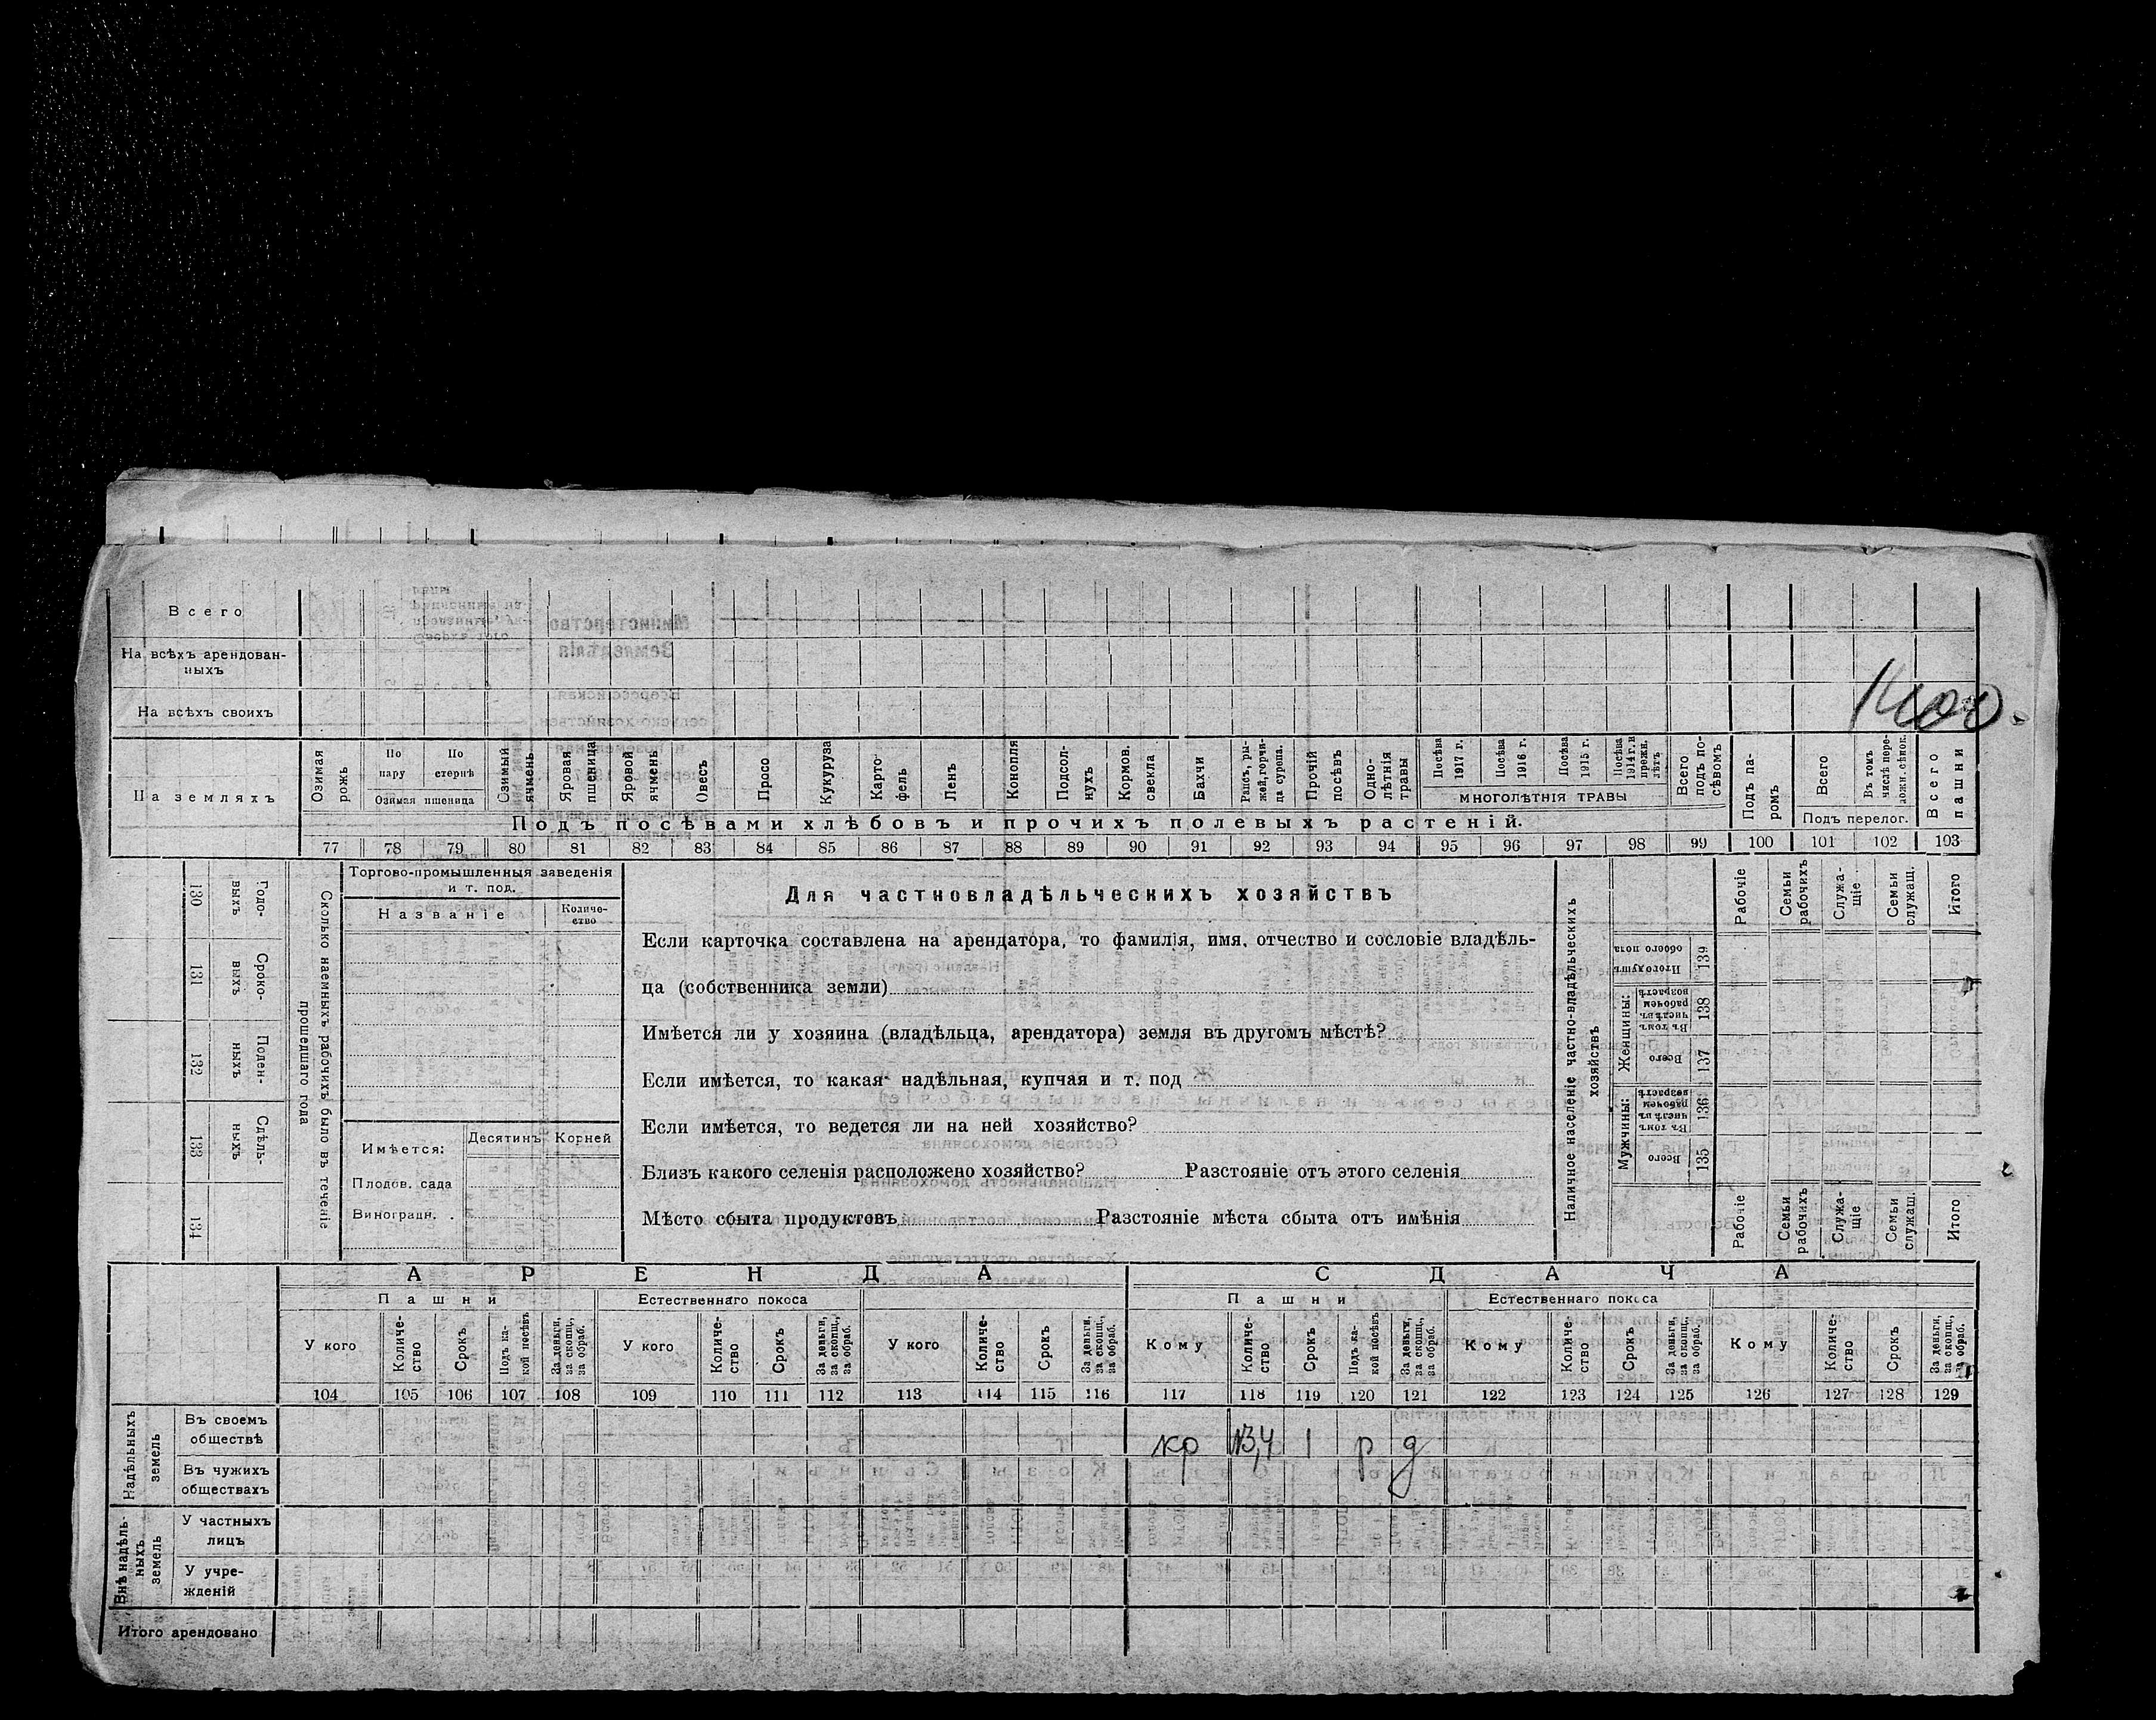 Всего
На всѣхъ арендован-
ныхъ
На всѣхъ своихъ
На земляхъ
Озимая рожь
По пару
По стернѣ
Озимая пшеница
Озимый ячмень
Яровая пшеница
Яровой ячмень
Овесъ
Просо
Кукуруза
Карто-
фель
Ленъ
Конопля
Подсол-
нухъ
Кормов.
свекла
Бахчи
Рапсъ, ры-
жей, горчи-
ца сурепа.
Прочій
посѣвъ
Одно-
лѣтнія
травы
Посѣва
1917 г.
Посѣва
1916 г.
Посѣва
1915 г.
Посѣва
1914 г. и
прежн.
лѣтъ
МНОГОЛѢТНІЯ ТРАВЫ
Всего
подъ по-
сѣвомъ
Подъ па-
ромъ
Всего
Въ томъ
числѣ пере-
ложн. сѣнок.
Подъ перелог.
Всего
пашни
Подъ посѣвами хлѣбовъ и прочихъ полевыхъ растеній.
77 78 79 80 81 82 83 84 85 86 87 88 89 90 91 92 93 94 95 96 97 98 99 100 101 102 103
130
Годо-
выхъ
131
Сроко-
выхъ
132
Поден-
ныхъ
133
Сдѣль-
ныхъ
134
Сколько наемныхъ рабочихъ было въ теченіе
прошедшаго года
Торгово-промышленныя заведенія
и т. под.
Названіе
Количе-
ство
Имѣется:
Десятинъ
Корней
Плодов. сада
Виноградн. .
Для частновладѣльческихъ хозяйствъ
Если карточка составлена на арендатора, то фамилія, имя, отчество и сословіе владѣль-
ца (собственника земли)
Имѣется ли у хозяина (владѣльца, арендатора) земля въ другомъ мѣстѣ?
Если имѣется, то какая: надѣльная, купчая и т. под
Если имѣется, то ведется ли на ней хозяйство?
Близъ какого селенія расположено хозяйство? Разстояніе отъ этого селенія
Мѣсто сбыта продуктовъ Разстояніе мѣста сбыта отъ имѣнія
Наличное населеніе частно-владѣльческихъ
хозяйствъ
Рабочіе
Семьи
рабочихъ
Служа-
щіе
Семьи
служащ.
Итого
Итого душъ
обоего пола
139
Женщины:
Въ томъ
числѣ въ
рабочемъ
возрастѣ
138
Всего
137
Мужчины:
Въ томъ
числѣ въ
рабочемъ
возрастѣ
136
Всего
135
Рабочіе
Семьи
рабочихъ
Служа-
щіе
Семьи
служащ.
Итого
АРЕНДА
СДАЧА
Пашни
Естественнаго покоса
Пашни
Естественнаго покоса
У кого
Количе-
ство
Срокъ
Подъ ка-
кой посѣвъ
За деньги,
за скопщ.,
за обраб.
У кого
Количе-
ство
Срокъ
За деньги,
за скопщ.,
за обраб.
У кого
Количе-
ство
Срокъ
За деньги,
за скопщ.,
за обраб.
Кому
Количе-
ство
Срокъ
Подъ ка-
кой посѣвъ
За деньги,
за скопщ.,
за обраб.
Кому
Количе-
ство
Срокъ
За деньги,
за скопщ.,
за обраб.
Кому
Количе-
ство
Срокъ
За деньги,
за скопщ.,
за обраб.
104 105 106 107 108 109 110 111 112 113 114 115 116 117 118 119 120 121 122 123 124 125 126 127 128 129
Надѣльныхъ
земель
Въ своемъ
обществѣ
кр 1 р д
Въ чужихъ
обществахъ
Внѣ надѣль-
ныхъ
земель
У частныхъ
лицъ
У учре-
жденій
Итого арендовано